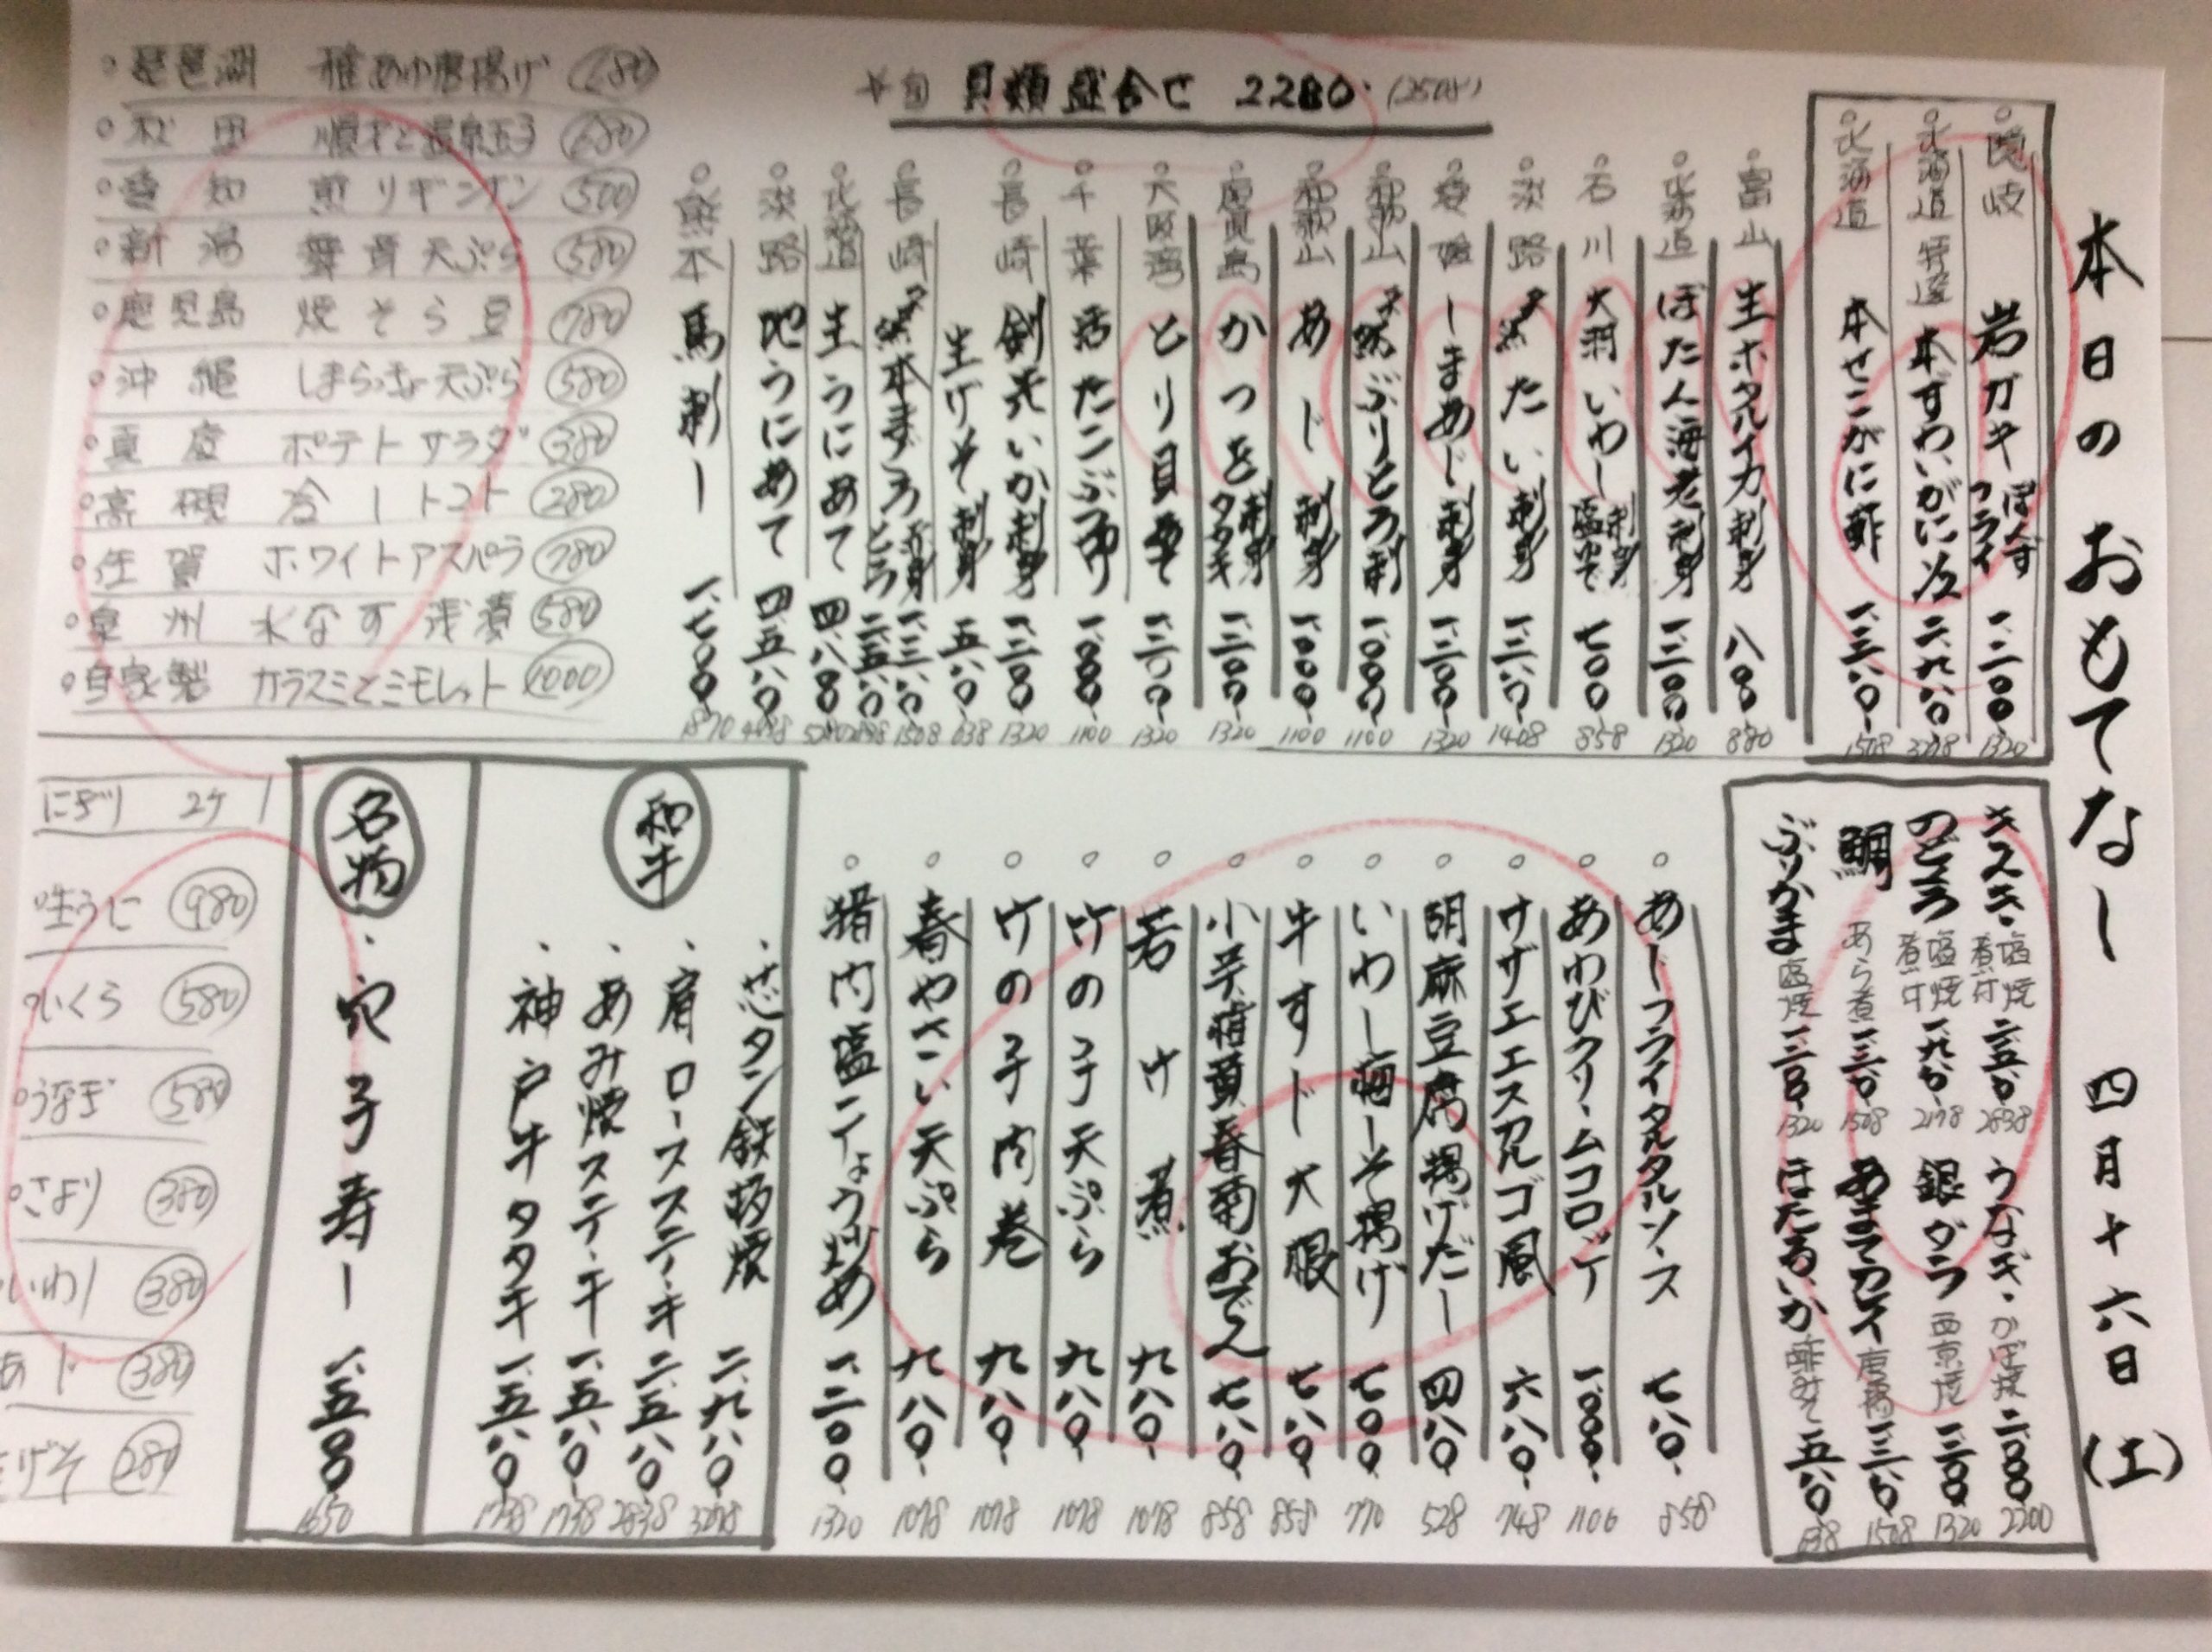 本日の おもてなし 四月十六日(土)
隠岐 岩ガキ ぽんず フライ 一、二〇〇 1320
北海道 特選 本ずわいがに 二、九八〇 3278
北海道 本せこがに酢 一、三八〇 1508
旬 貝類盛合せ 2280
富山 生ホタルイカ刺身 八〇〇 880
北海道 ぼたん海老刺身 一、二〇〇 1320
石川 大羽いわし 刺身 塩ゆで 七〇〇 858
淡路 天然たい刺身 一、二八〇 1408
愛媛 しまあじ刺身 一、二〇〇 1320
和歌山 天然ぶりとろ刺 一、〇〇〇 1100
和歌山 あじ刺身 一、〇〇〇 1100
鹿児島 かつを 刺身 タタキ 一、二〇〇 1320
大阪湾 とり貝 一、二〇〇 1320
千葉 活たこぶつ 一、〇〇〇 1100
長崎 剣先いか刺身 一、二〇〇 1320
生げそ刺身 五八〇 638
長崎 天然本まぐろ 赤身 とろ 一、三八〇 二、五八〇 1508
北海道 生うにあて 四、八〇〇 5280
淡路 地うにあて 四、五八〇
熊本 馬刺し 一、七〇〇 1870
琵琶湖 稚あゆ唐揚げ
秋田 順才と温泉玉子
愛知 煎りギンナン 500
新潟 舞茸天ぷら 580
鹿児島 焼そら豆 780
沖縄 しまらっきょ天ぷら 580
真庭 ポテトサラダ 380
高槻 冷しトマト 280
佐賀 ホワイトアスパラ 780
泉州 水なす浅漬 580
自家製 カラスミとミモレット 1000
キスキ 塩焼 煮付 二、五八〇 2838
のどぐろ 塩焼 煮付 一、九八〇 2178
鯛 あら煮 一、三八〇 1508
ぶりかま 塩焼 一、二〇〇 1320
うなぎ かば焼 二、〇〇〇 2200
銀ダラ 西京焼 一、二〇〇 1320
あまてカレイ 唐揚 一、三八〇 1508
ほたるいか 五八〇 638
あじフライタルタルソース 七八〇 858
あわびクリームコロッケ 一、〇〇〇 1100
サザエエスカルゴ風 六八〇 748
胡麻豆腐揚げだし 四八〇 528
いわし梅しそ揚げ 七〇〇 770
牛すじ大根 七八〇 858
小芋 春菊おでん 七八〇 858
若竹煮 九八〇 1078
竹の子天ぷら 九八〇 1078
竹の子肉巻 九八〇 1078
春やさい天ぷら 九八〇 1078
猪肉塩こしょう炒め 一、二〇〇 1320
和牛
芯タン鉄板焼 二、九八〇 3278
肩ロースステーキ 二、五八〇 2838
あみ焼ステーキ 一、五八〇 1738
神戸牛タタキ 一、五八〇 1738
名物
穴子寿し 一、五〇〇 1650
にぎり 2ケ
生うに 980
いくら 580
うなぎ 580
さより 380
いわし 380
あじ 380
げそ 280